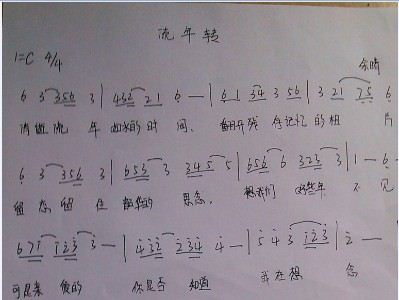 流年转
1=C 4/4
6 3 356 3 | 432 21 6 — | 61 34 3 56 | 3 21 75 6
流 年 的时 间、 翻开残存记忆的相 片
6 3 356 3 | 653 3 345 5 | 656 6 323 3 | 1 — 6
留恋留住 思念, 想我们 那些年 不见
671 123 3 — | 432 234 4 — | 543 123 | 2 —
可是亲爱的 你是否 知道 我在想 念